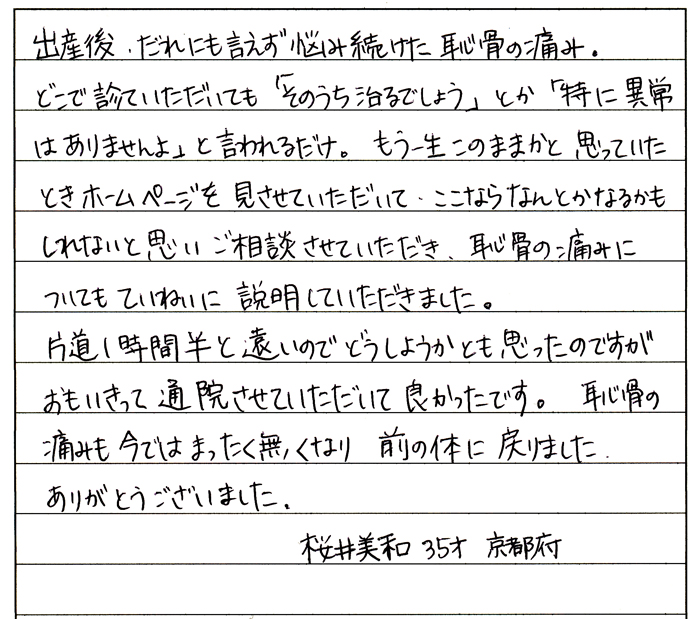 出産後、だれにも言えず悩み続けた恥骨の痛み。
どこで診ていただいても「そのうち治るでしょう」とか「特に異常
はありませんよ」と言われるだけ。もう一生このままかと思っていた
ときホームページを見させていただいて、ここならなんとかなるかも
しれないと思いご相談させていただき、恥骨の痛みに
ついてもていねいに説明していただきました。
片道1時間半と遠いのでどうしようかとも思ったのですが
おもいきって通院させていただいて良かったです。恥骨の
痛みも今ではまったく無くなり前の体に戻りました。
ありがとうございました。
桜井美和 35才 京都府